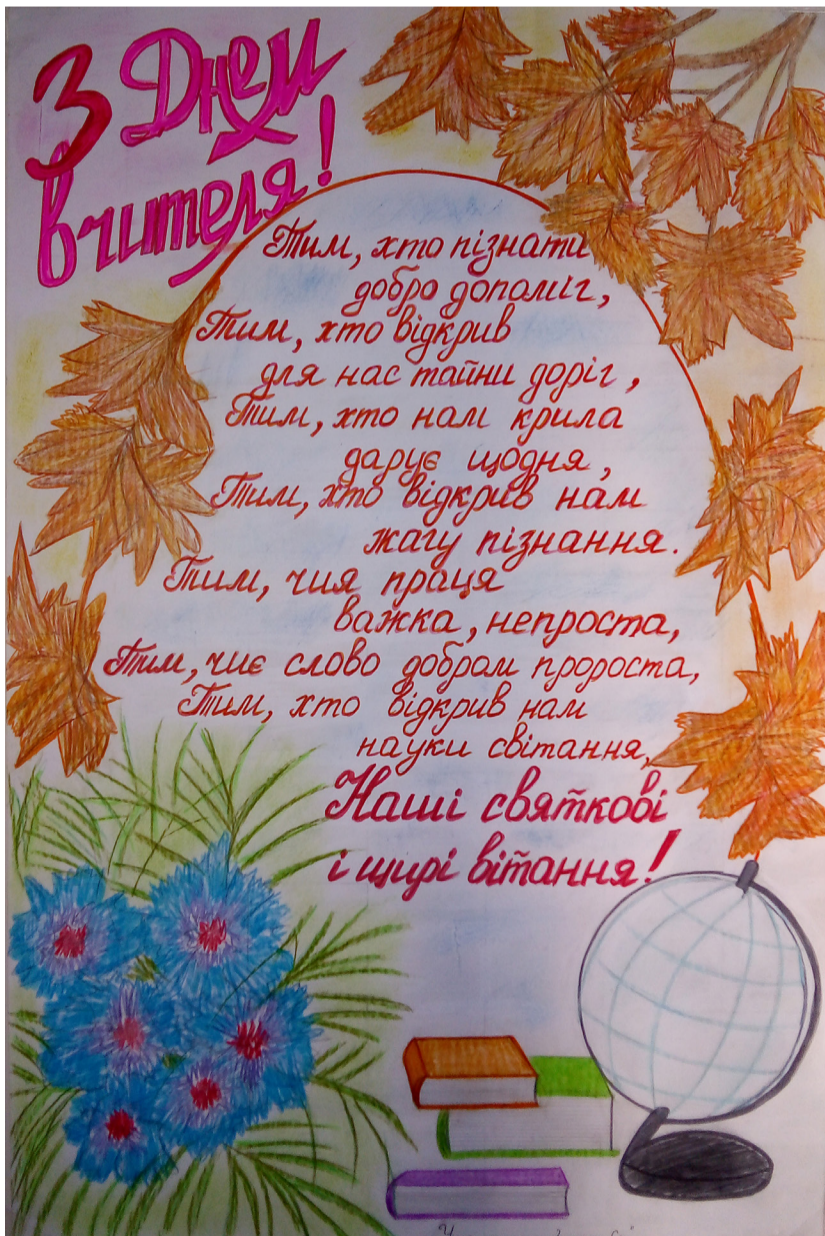 З Днем
вчителя!
Тим, хто пізнати
добро допоміг,
Тим, хто відкрив
для нас тайни доріг,
Тим, хто нам крила
дарує щодня,
Тим, хто відкрив нам
жагу пізнання.
Тим, чия праця
важка, непроста,
Тим, чиє слово добром пророста,
Тим, хто відкрив нам
науки світання,
Наші святкові
і щирі вітання!